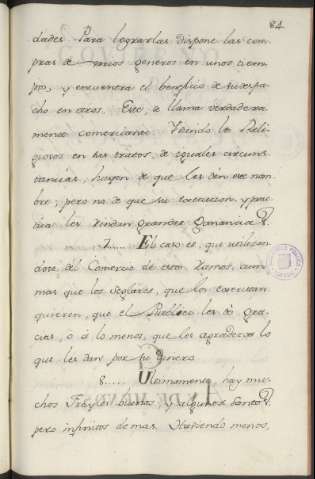 84
dades. Para lograrlas dispone las com-
pras de varios generos en unos tiem-
pos, y encuentra el beneficio de su despa-
cho en otros. Esto, se llama verdadera
mente comerciante. Siendo los Reli-
giosos en sus tratos, de iguales circuns-
tancias, huyen de que les den ese nom-
bre, pero no de que su execucion, y prac-
tica les rindan grandes Ganancias.
7..... El caso es, que utilizan
dose del Comercio de estos Ramos, aun
mas que los Seglares, que los executan
quieren, que el Publico les dé gra-
cias, o á lo menos, que les agradezcan lo
que les dan por su dinero.
8..... Ultimamente, hay mu-
chos Frayles buenos, y algunos Santos,
pero infinitos de mas. Habiendo menos,